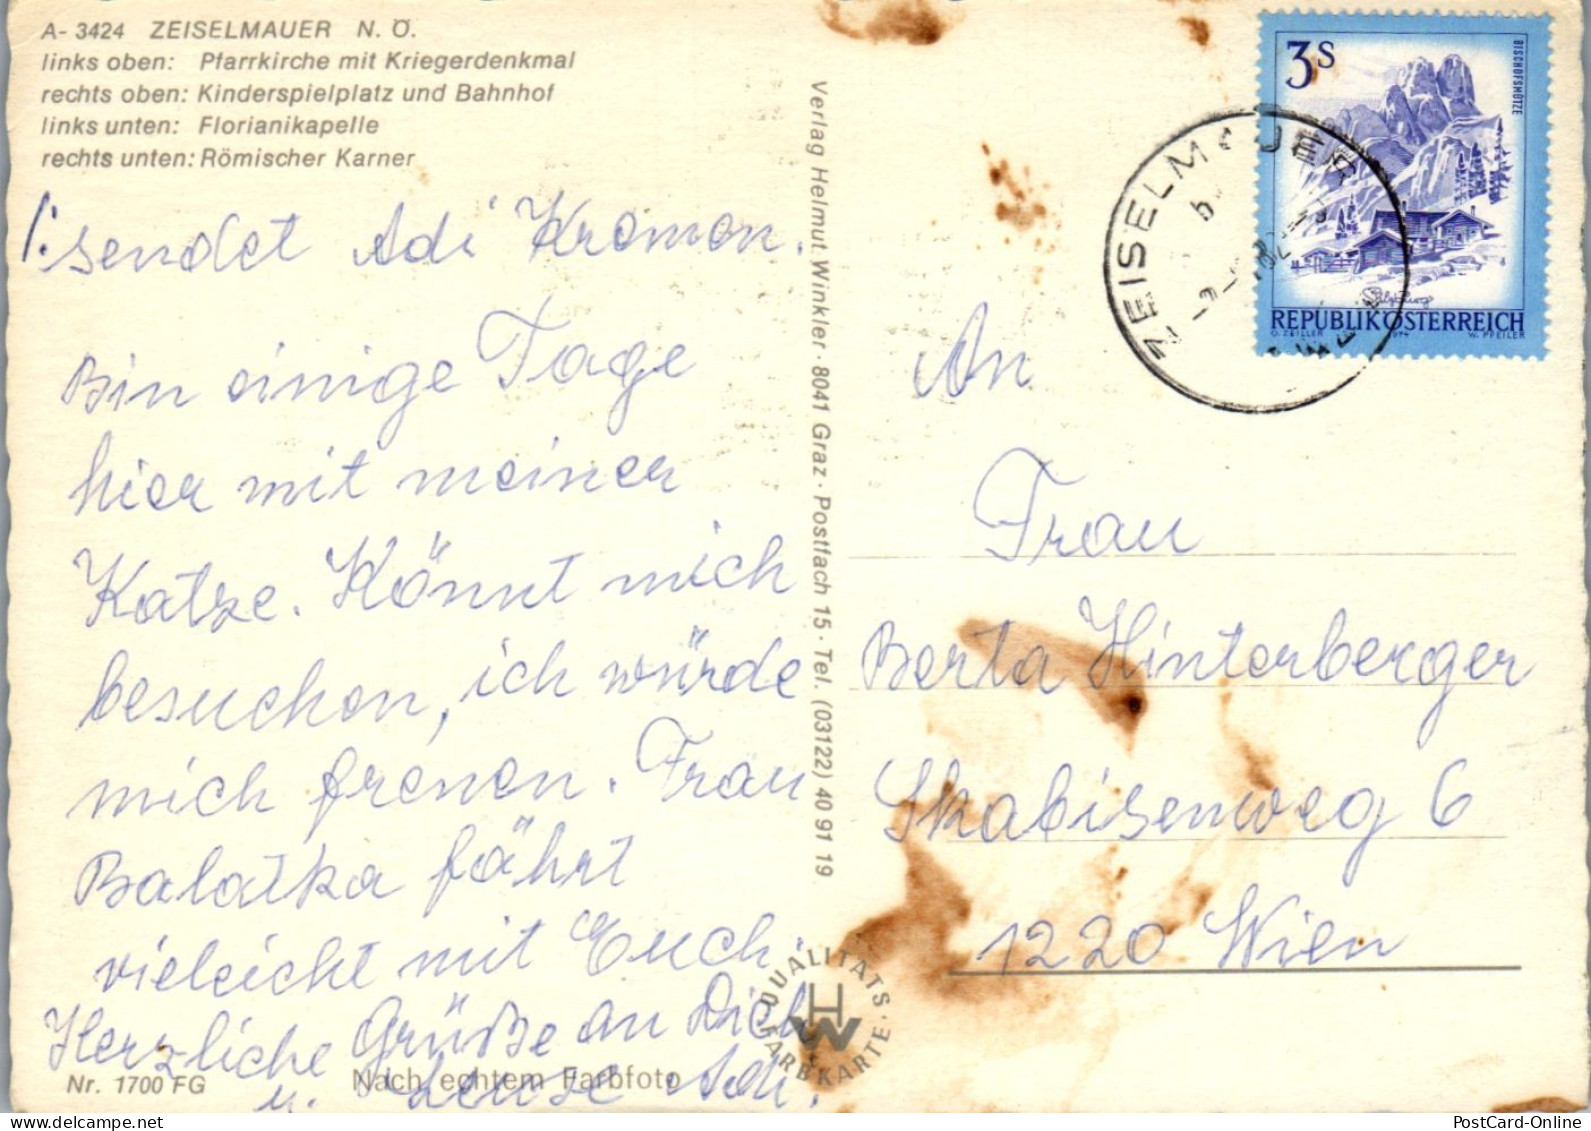 A- 3424 ZEISELMAUER N. Ö.
links oben: Pfarrkirche mit Kriegerdenkmal
rechts oben: Kinderspielplatz und Bahnhof
links unten: Florianikapelle
rechts unten: Römischer Karner
sendet Adi Kremen.
Bin einige Tage
hier mit meiner
Katze. Könnt mich
besuchen, ich würde
mich freuen. Frau
Balatka fährt
vieleicht mit Euch.
Herzliche Grüße an Dich
u. Adi.
Nr. 1700 FG
Nach echtem Farbfoto
Verlag Helmut Winkler · 8041 Graz · Postfach 15 · Tel. (03122) 40 91 19
QUALITÄTS
HW
FARBKARTE
3S
BISCHOFSMÜTZE
REPUBLIK ÖSTERREICH
O. ZEILLER 1974 W. PFEILER
ZEISELMAUER
An
Frau
Berta Hinterberger
Skabisenweg 6
1220 Wien
PostCard-Online